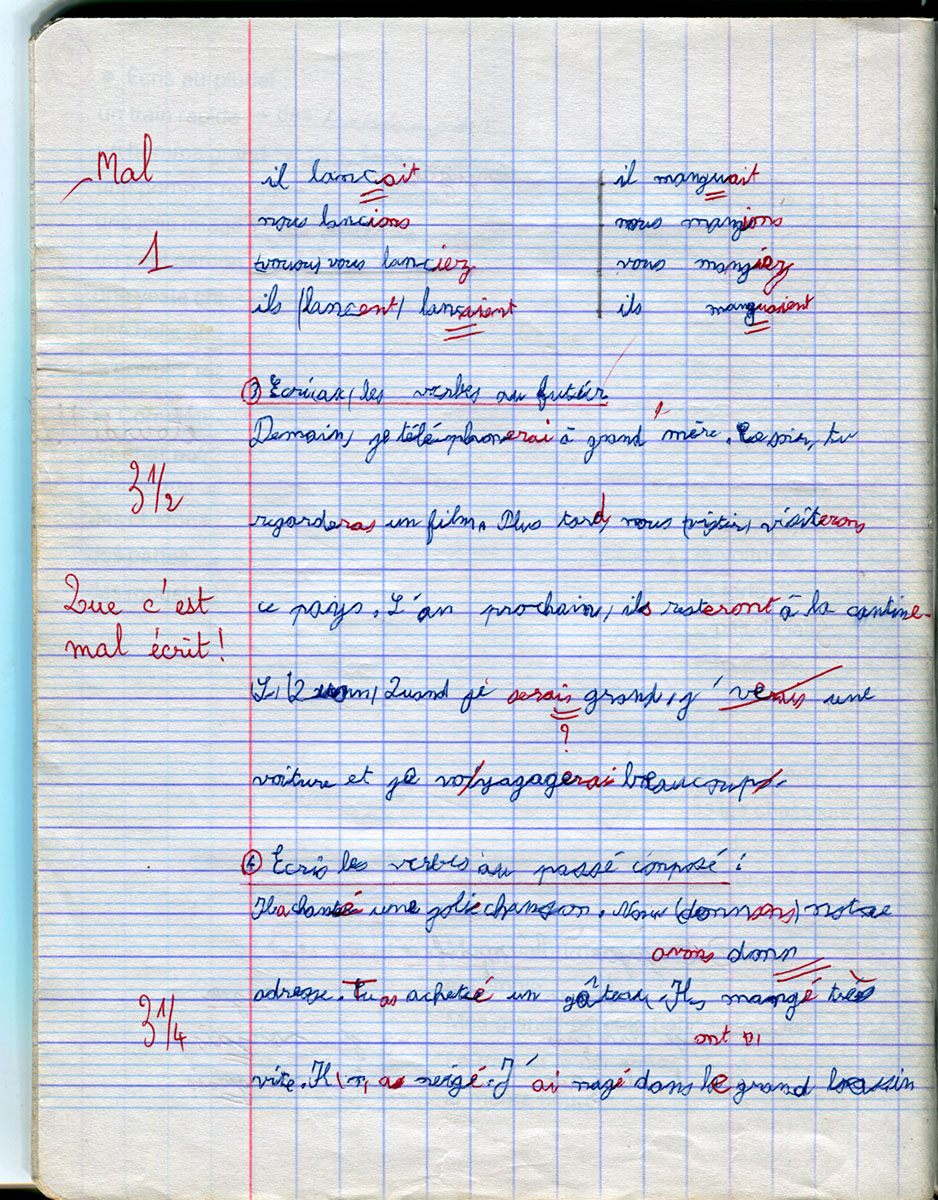 Mal
il lancait il manguait
nous lancions nous mangions
vous lanciez vous mangiez
1
ils (lancent) lancaient ils manguaient
③ les verbes au futur
Demain, je téléphonerai à grand'mère. Ce soir, tu
3 1/2
regarderas un film. Plus tard, nous visiterons
Que c'est
mal écrit !
ce pays. L'an prochain, ils resteront à la cantine.
Quand je serais grand, j' verais une
?
voiture et je voyagagerai beaucoup.
④ Ecris les verbes au passé composé :
Il a chanté une jolie chanson. Nous (donnons) notre
avons donn
adresse. Tu as acheté un gâteau. Ils mangé très
ont
3 1/4
vite. Il a neigé. J'ai nagé dans le grand bassin